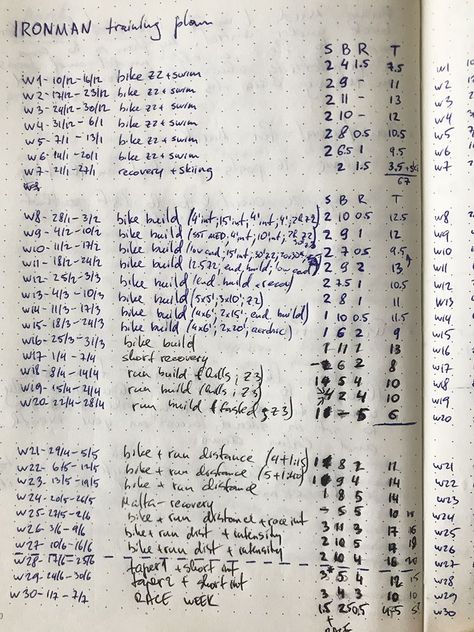 IRONMAN training plan
S B R T
W1 - 10/12 - 16/12 bike z2 + swim 2 4 1.5 7.5
W2 - 17/12 - 23/12 bike z2 + swim 2 9 - 11
W3 - 24/12 - 30/12 bike z2 + swim 2 11 - 13
W4 - 31/12 - 6/1 bike z2 + swim 2 10 - 12
W5 - 7/1 - 13/1 bike z2 + swim 2 8 0.5 10.5
W6 - 14/1 - 20/1 bike z2 + swim 2 6.5 1 9.5
W7 - 21/1 - 27/1 recovery + skiing 2 1.5 3.5 + ski
67
S B R T
W8 - 28/1 - 3/2 bike build (4'int; 15'int; 4'int; 4'; 2h z2) 2 10 0.5 12.5
W9 - 4/2 - 10/2 bike build 4'int; 10'int; 2h z2) 2 9 1 12
W10 - 11/2 - 17/2 bike build (low end; 15'int; 2 7 0.5 9.5
W11 - 18/2 - 24/2 bike build end. build; low end) 2 9 2 13
W12 - 25/2 - 3/3 bike build (end. build + reco) 2 7.5 1 10.5
W13 - 4/3 - 10/3 bike build (5x5', 3x10'; z2) 2 8 1 11
W14 - 11/3 - 17/3 bike build (4x6'; 2x15'; end. build) 1 10 0.5 11.5
W15 - 18/3 - 24/3 bike build (4x6'; 2x20'; aerobic) 1 6 2 9
W16 - 25/3 - 31/3 bike build 1 11 1 13
W17 1/4 - 7/4 short recovery - 6 2 8
W18 - 8/4 - 14/4 run build (hills; z3) 5 4 10
W19 - 15/4 - 21/4 run build (hills; z3) 2 4 10
W20 - 22/4 - 28/4 run build z3) - 5 6
W21 - 29/4 - 5/5 bike + run distance (4+1.15) 8 2 11
W22 - 6/5 - 12/5 bike + run distance 9 4 14
W23 - 13/5 - 19/5 bike + run distance 1 8 5 14
W24 - 20/5 - 26/5 Malta - recovery - 5 5 10
W25 - 27/5 - 2/6 bike + run distance + race int 3 11 3 17
W26 - 3/6 - 9/6 bike + run dist + intensity 2 10 5 17
W27 - 10/6 - 16/6 bike + run dist + intensity 2 10 4 16
W28 - 17/6 - 23/6 taper 1 + short int 3 5 4 12
W29 - 24/6 - 30/6 taper 2 + short int 3 4 3 10
W30 - 1/7 - 7/7 RACE WEEK 1.5 2.5 0.5 4.5
+
RACE
W1
W2
W3
W4
W5
W6
W7
W8
W9
W10
W11
W12
W13
W14
W15
W16
W17
W18
W19
W20
W21
W22
W23
W24
W25
W26
W27
W28
W29
W30